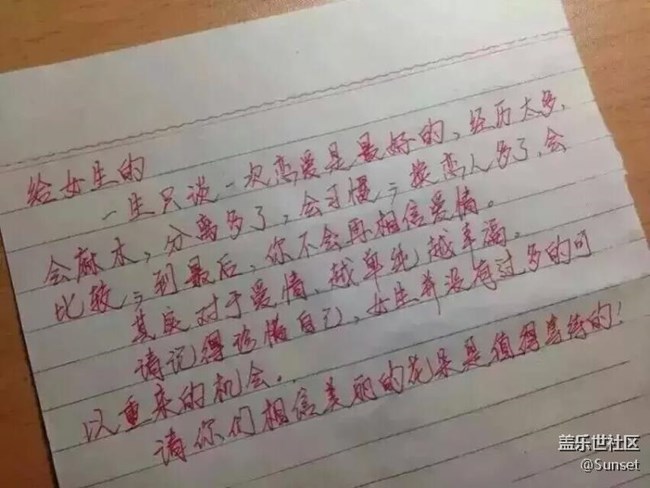 给女生的
一生只谈一次恋爱是最好的，经历太多，
会麻木，分离多了，会习惯，换恋人多了，会
比较，到最后，你不会再相信爱情。
其实对于爱情，越单纯越幸福。
请记得珍惜自己，女生并没有过多的可
以重来的机会。
请你们相信美丽的花朵是值得等待的！
盖乐世社区
@Sunset